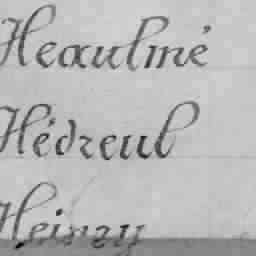 Heaulmé
Hédreul
Heinry